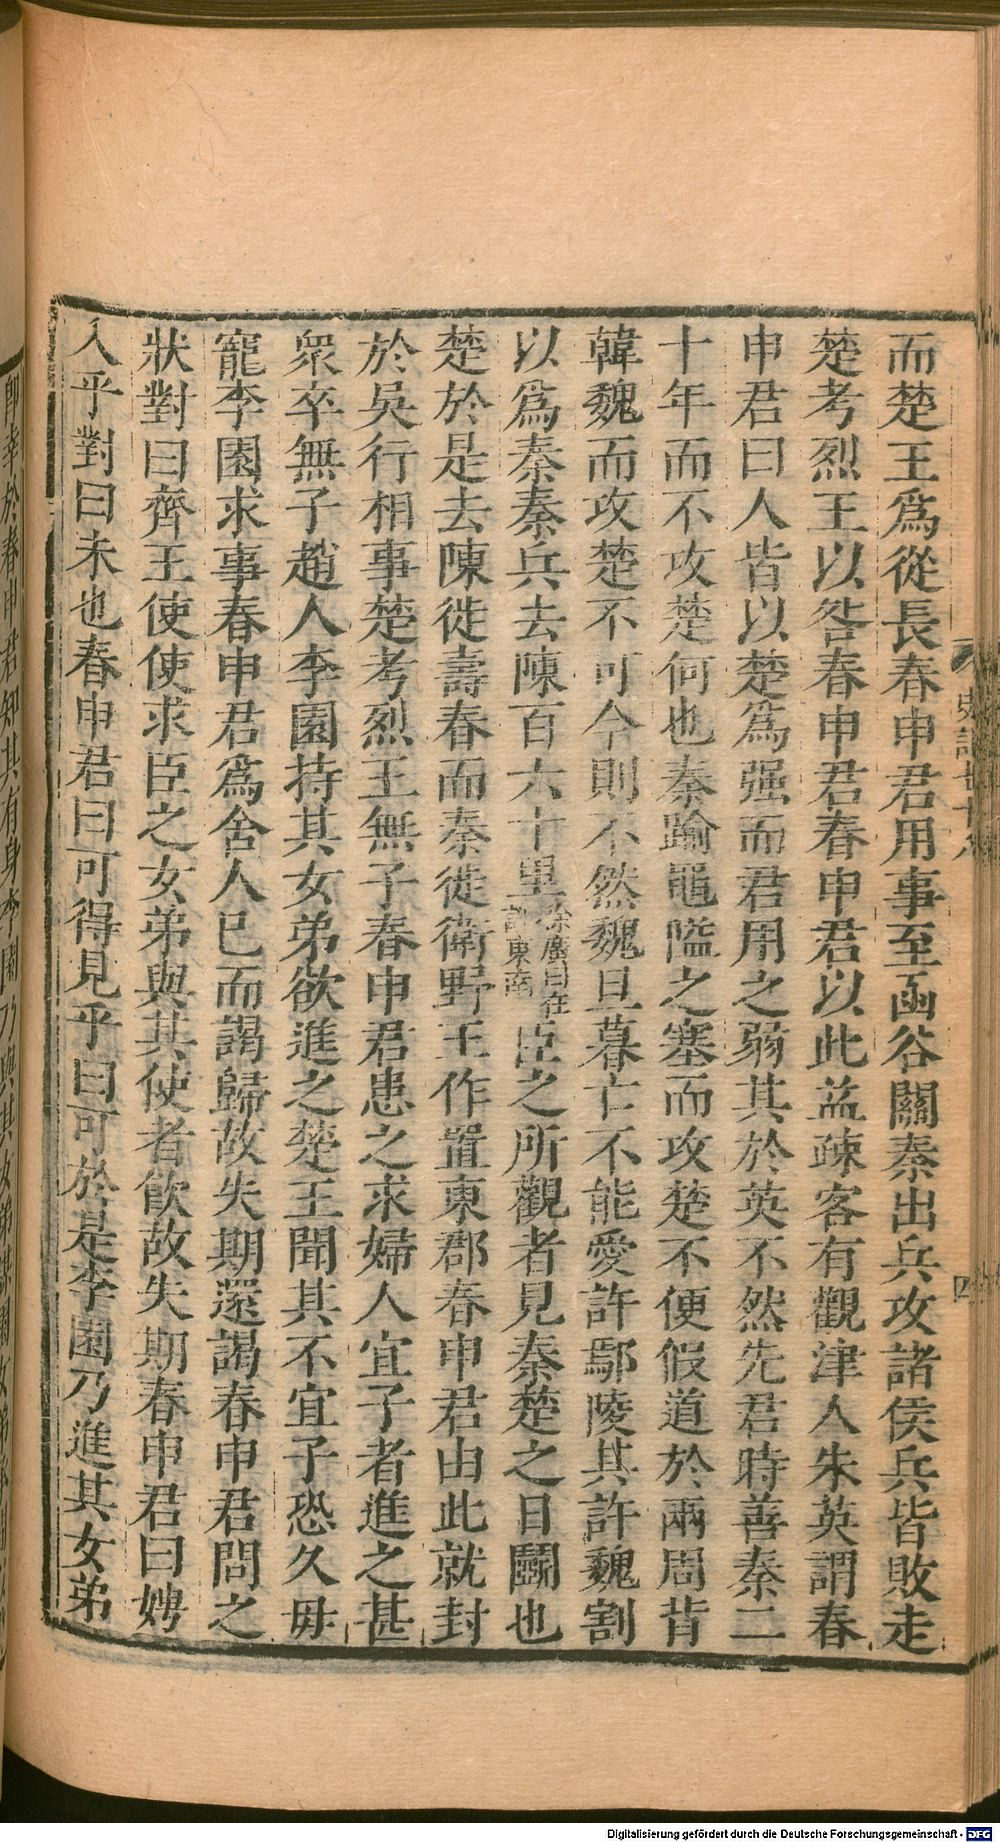 而楚王爲從長春申君用事至函谷關秦出兵攻諸侯兵皆敗走
楚考烈王以咎春申君春申君以此益疎客有觀津人朱英謂春
申君曰人皆以楚爲强而君用之弱其於英不然先君時善秦二
十年而不攻楚何也秦踰黽隘之塞而攻楚不便假道於兩周背
韓魏而攻楚不可今則不然魏旦暮亡不能愛許鄢陵其許魏割
以爲秦秦兵去陳百六十里徐廣曰在許東南臣之所觀者見秦楚之日鬭也
楚於是去陳徙壽春而秦徙衛野王作置東郡春申君由此就封
於吳行相事楚考烈王無子春申君患之求婦人宜子者進之甚
衆卒無子趙人李園持其女弟欲進之楚王聞其不宜子恐久毋
寵李園求事春申君爲舍人已而謁歸故失期還謁春申君問之
狀對曰齊王使使求臣之女弟與其使者飲故失期春申君曰娉
入乎對曰未也春申君曰可得見乎曰可於是李園乃進其女弟
即幸於春申君知其有身李園乃與其女弟謀園女弟承
史記七十八
四
Digitalisierung gefördert durch die Deutsche Forschungsgemeinschaft - DFG